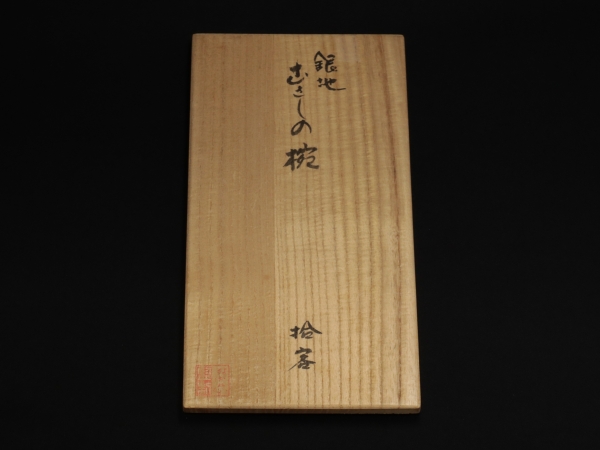 銀地
むさしの椀
拾客